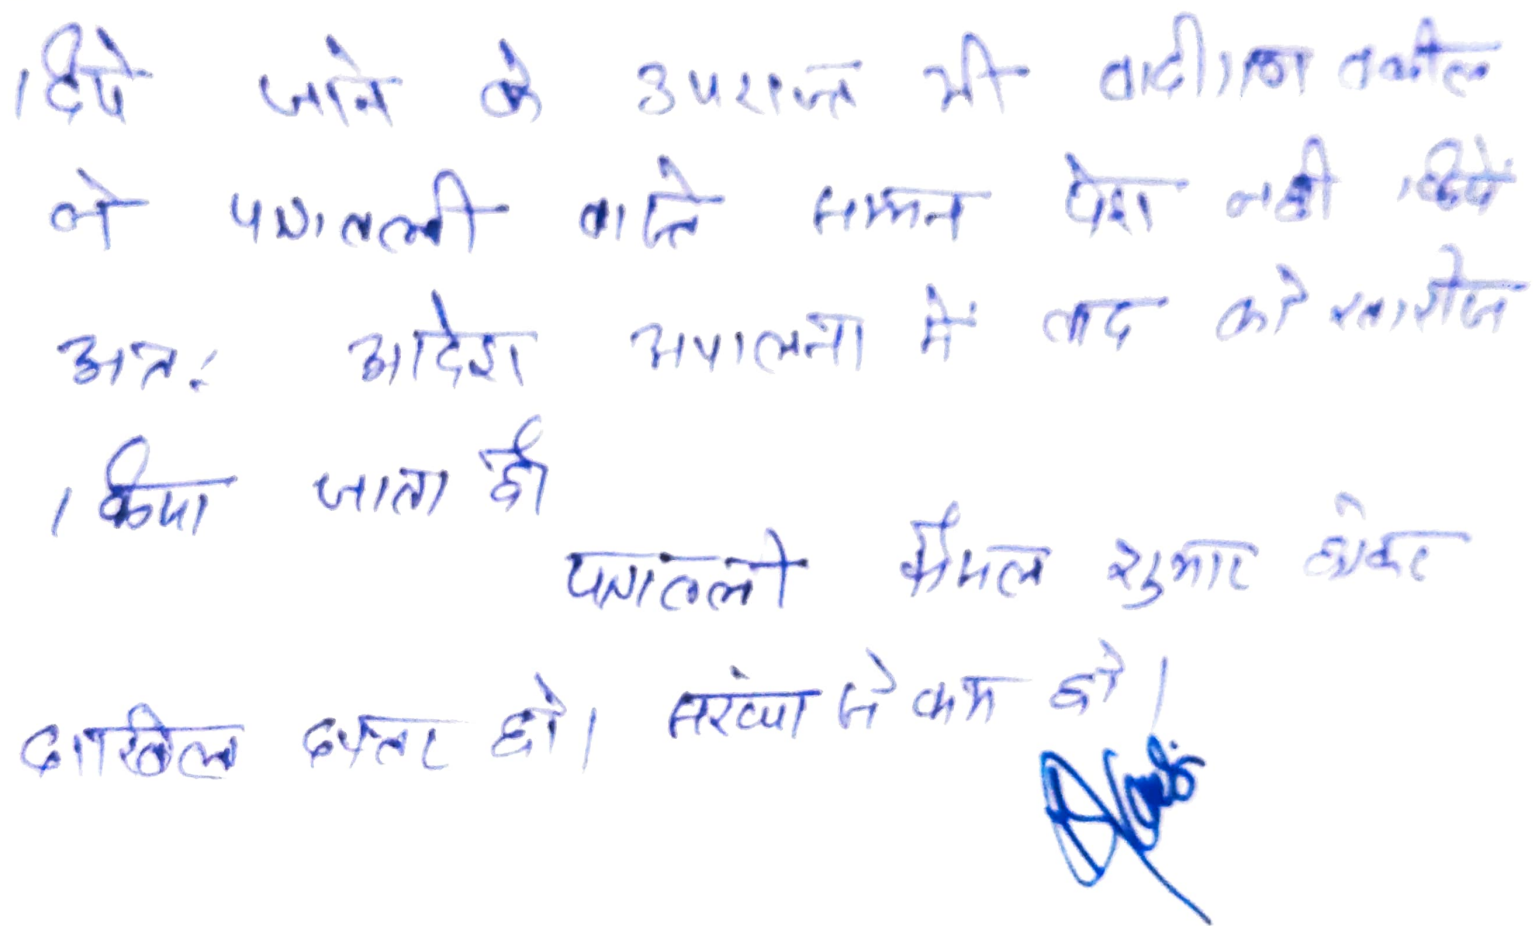 दिये जाने के उपरान्त भी वादीगण वकील
ने पत्रावली वास्ते सम्मन पेश नही किये
अतः आदेश अपालना में वाद को खारीज
किया जाता है।
पत्रावली फैसल शुमार होकर
दाखिल दफ्तर हो। संख्या से कम हो।